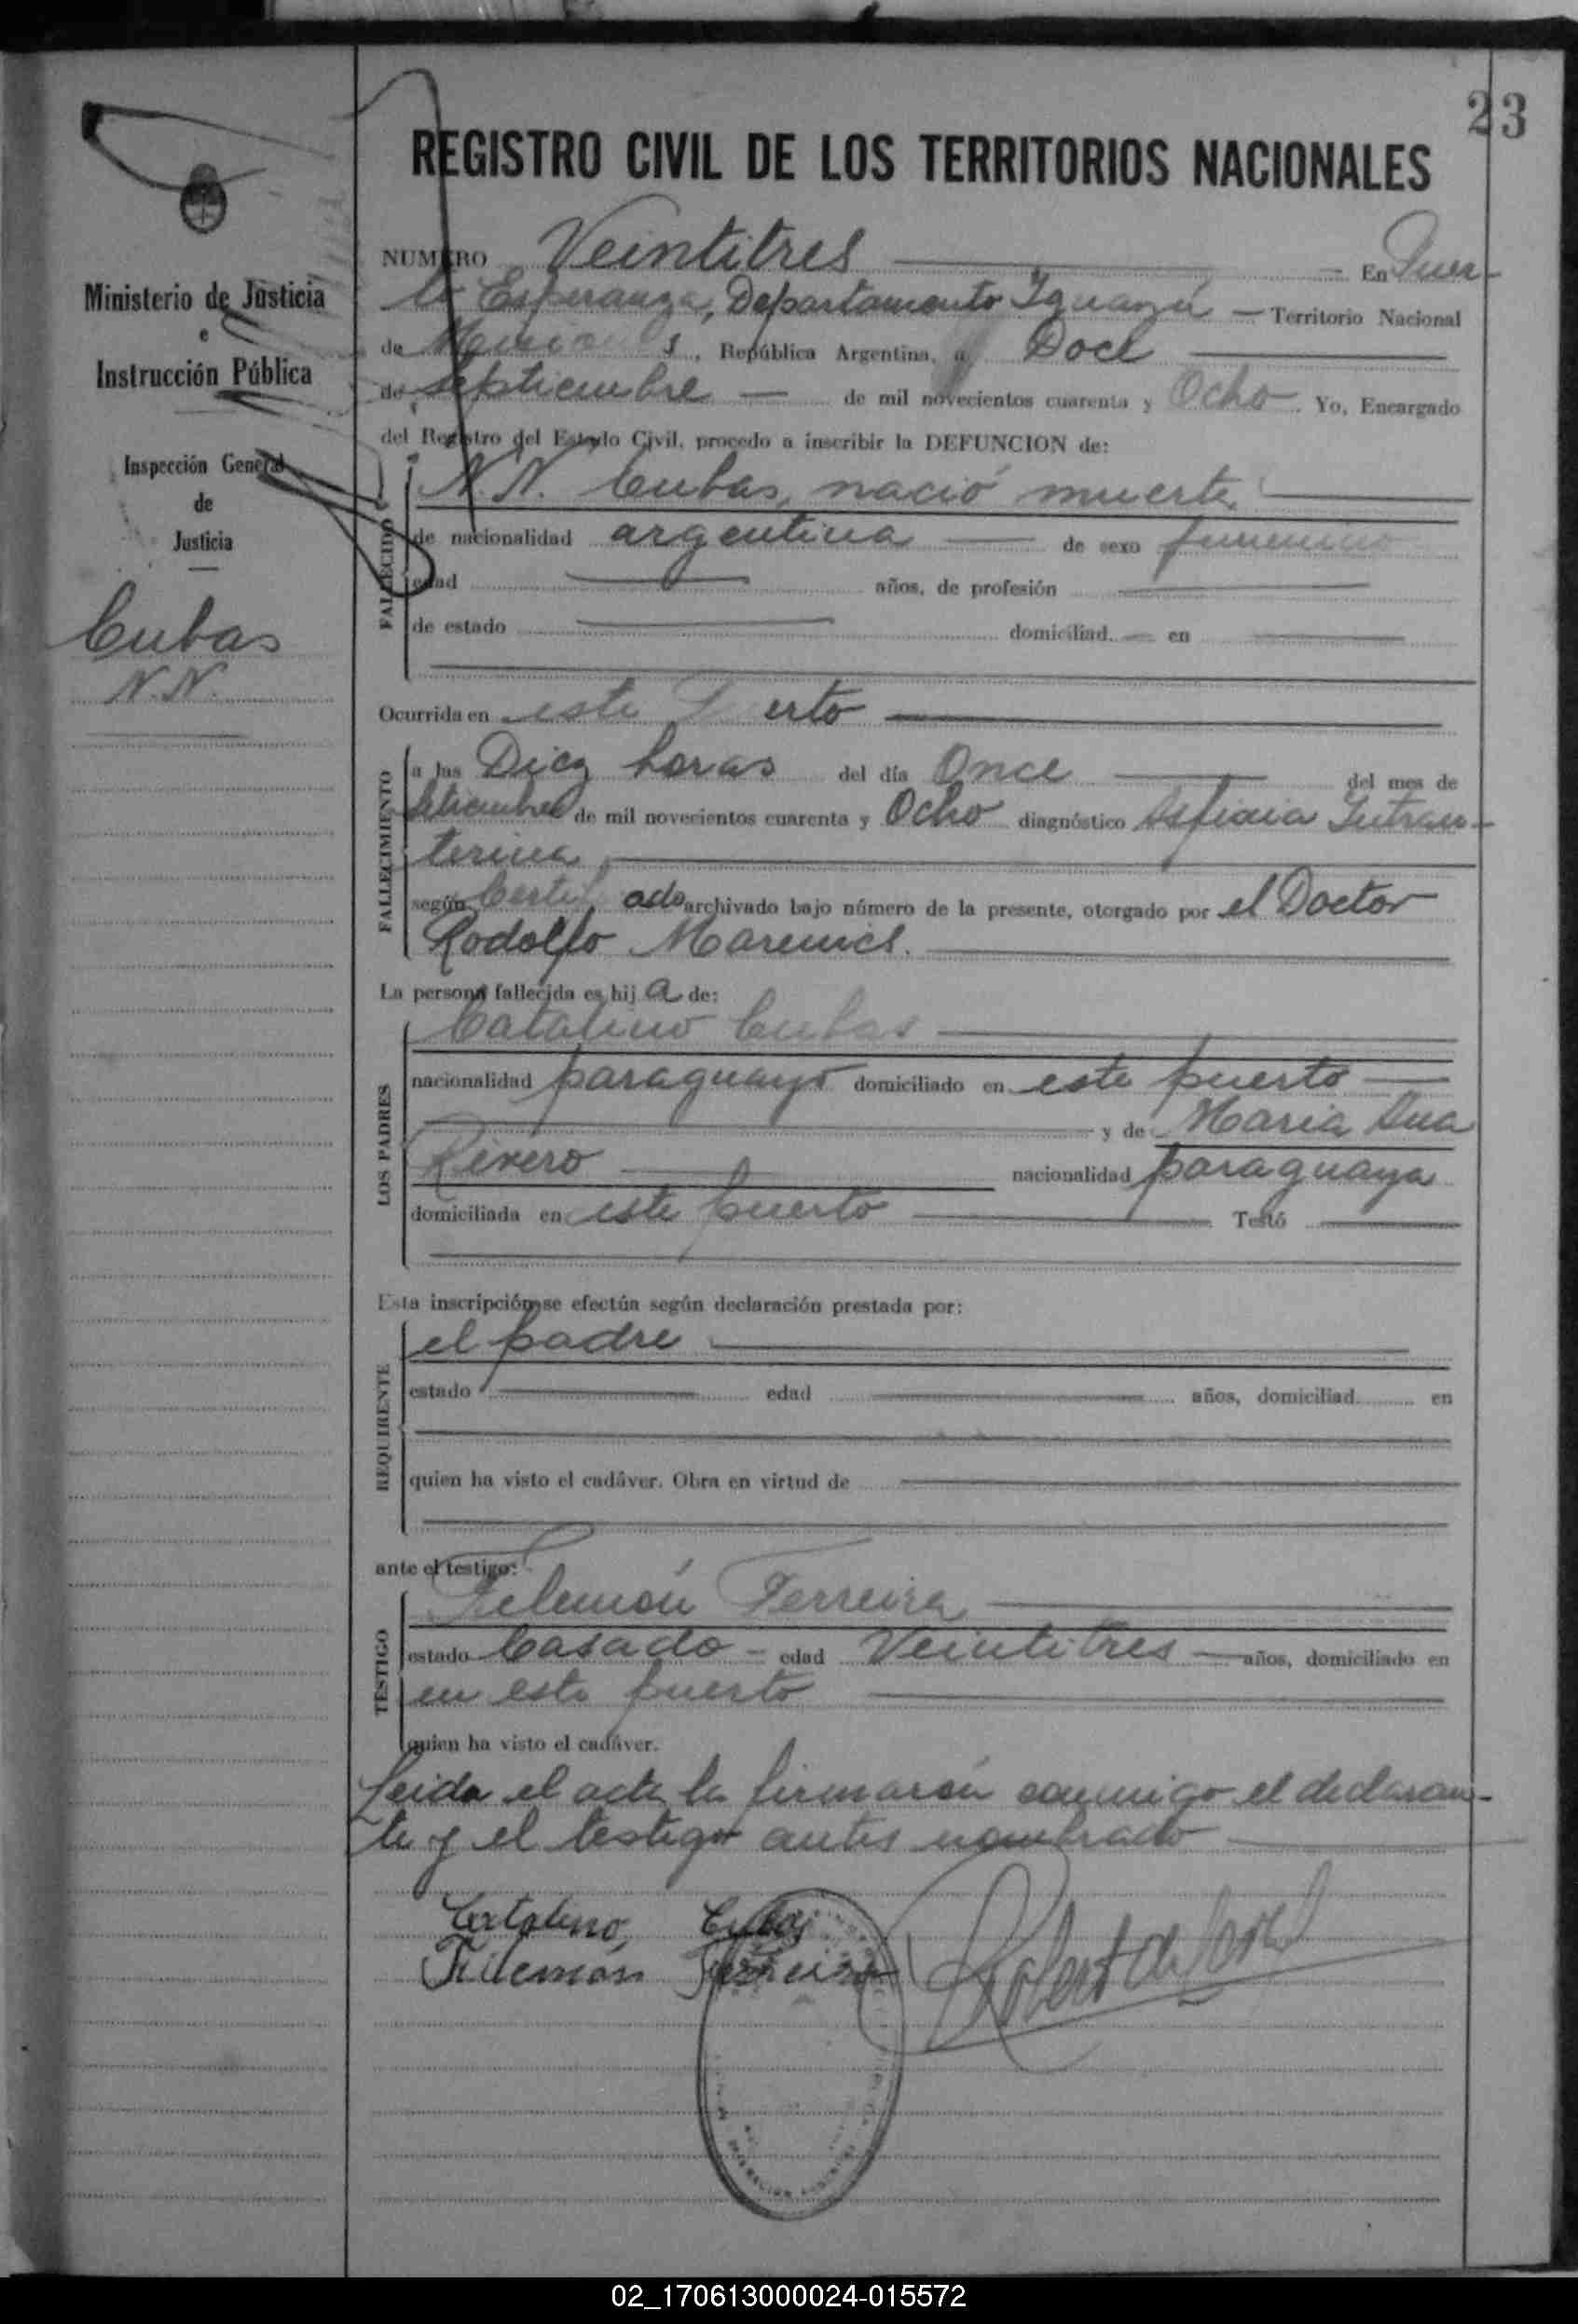 23
REGISTRO CIVIL DE LOS TERRITORIOS NACIONALES
Ministerio de Justicia
e
Instrucción Pública
Inspección General
de
Justicia
Cubas
N.N.
NUMERO Veintitres En Puer-
to Esperanza, Departamento Iguazú Territorio Nacional
de Misiones, República Argentina, a Doce
de Septiembre de mil novecientos cuarenta y Ocho. Yo, Encargado
del Registro del Estado Civil, procedo a inscribir la DEFUNCION de:
FALLECIDO
N.N. Cubas, nació muerta
de nacionalidad argentina de sexo femenino
edad años, de profesión
de estado domiciliad en
Ocurrida en este Puerto
FALLECIMIENTO
a las Diez horas del día Once del mes de
Setiembre de mil novecientos cuarenta y Ocho diagnóstico Asfixia Intrau-
terina
según Certificado archivado bajo número de la presente, otorgado por el Doctor
Rodolfo
La persona fallecida es hija de:
LOS PADRES
Catalino Cubas
nacionalidad paraguayo domiciliado en este puerto
y de Maria Ana
Rivero nacionalidad paraguaya
domiciliada en este puerto Testó
Esta inscripción se efectúa según declaración prestada por:
REQUIRENTE
el padre
estado edad años, domiciliad en
quien ha visto el cadáver. Obra en virtud de
ante el testigo:
TESTIGO
Filemón Ferreira
estado Casado edad Veintitres años, domiciliado en
en este puerto
quien ha visto el cadáver.
Leida el acta la firmarón conmigo el declaran-
te y el testigo antes nombrado
Catalino Cubas
Filemón Ferreira
02_170613000024-015572